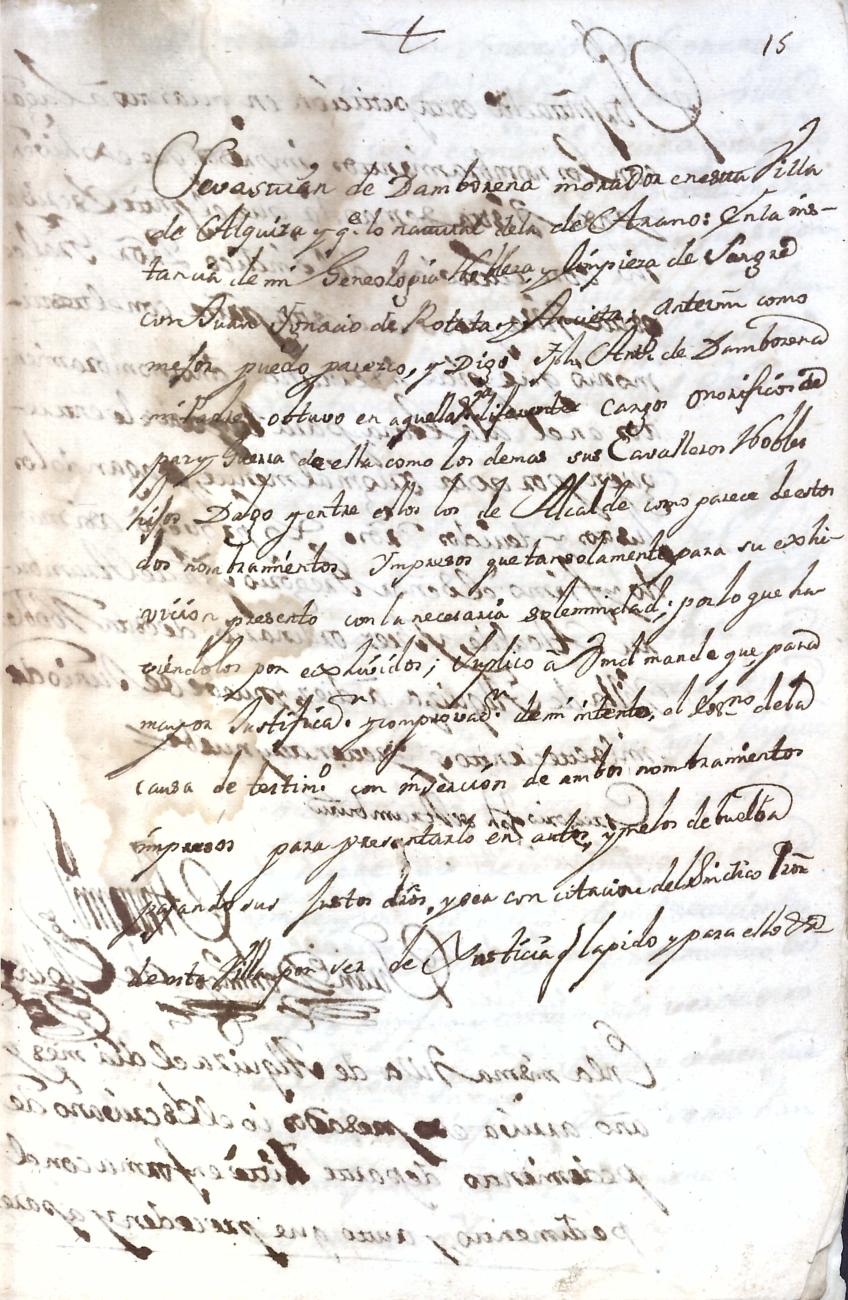 15
Sevastian de Damborena morador enesta Villa
de Alquiza y q.e lo natural dela de Arano: Enla ins-
tancia de mi Geneologia Nobleza, y limpieza de Sangre
con Juan Ignacio de Roteta y Arrieta, anteVm como
mejor puedo parezco, y Digo Jph. Anto. de Damborena
mi Padre obtuvo en aquella Va. diferentes cargos onorificos de
paz y Guerra de ella como los demas sus Cavalleros Nobles
hijos Dalgo y entre ellos los de Alcalde como parece de estos
dos nombramientos Ympresos que tan solamente para su exhi-
vicion presento con la necesaria solemnidad; por lo que ha-
viendolos por exhividos; Suplico â Vmd mande que, para
mayor Justificaz.n y comprovaz.n de mi intento, el Ess.no dela
causa de testim.o con inserción de ambos nombramientos
impresos para presentarlo en autos, y melos debuelba
pagando sus justos dros, y sea con citacion del Sindico Pror
de esta Villa por ser de Justicia q lapido y para ello &a